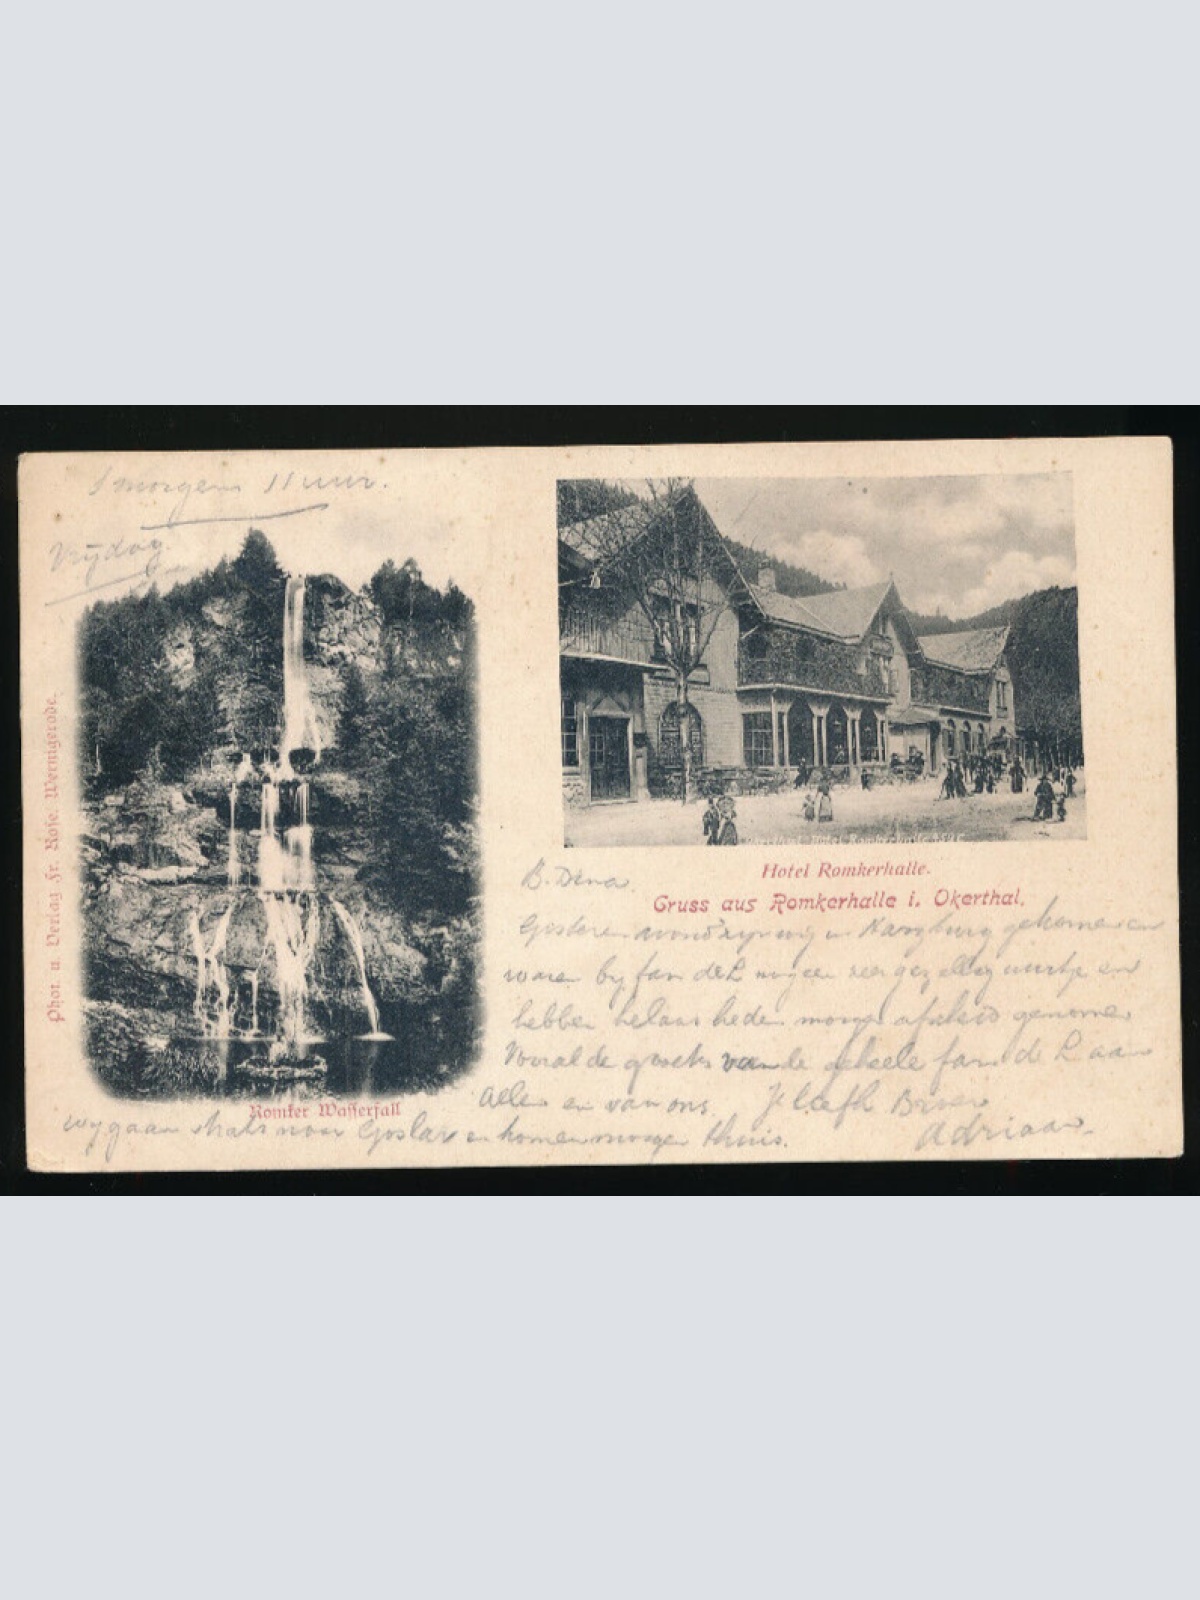 S morgens 11 uur.
Vrijdag.
Phot. u. Verlag Fr. Rose, Wernigerode.
Hotel Romkerhalle.
B. Dina
Gruss aus Romkerhalle i. Okerthal.
Gisteren avond zijn wij in Harzburg gekomen en
waren by fam de L nog een zeer gezellig uurtje en
hebben helaas heden morgen afscheid genomen
Vooral de groeten van de geheele fam de L aan
Allen en van ons. Je liefh Broer
Romker Wasserfall
Wy gaan thans naar Goslar en komen morgen thuis.
Adriaan.